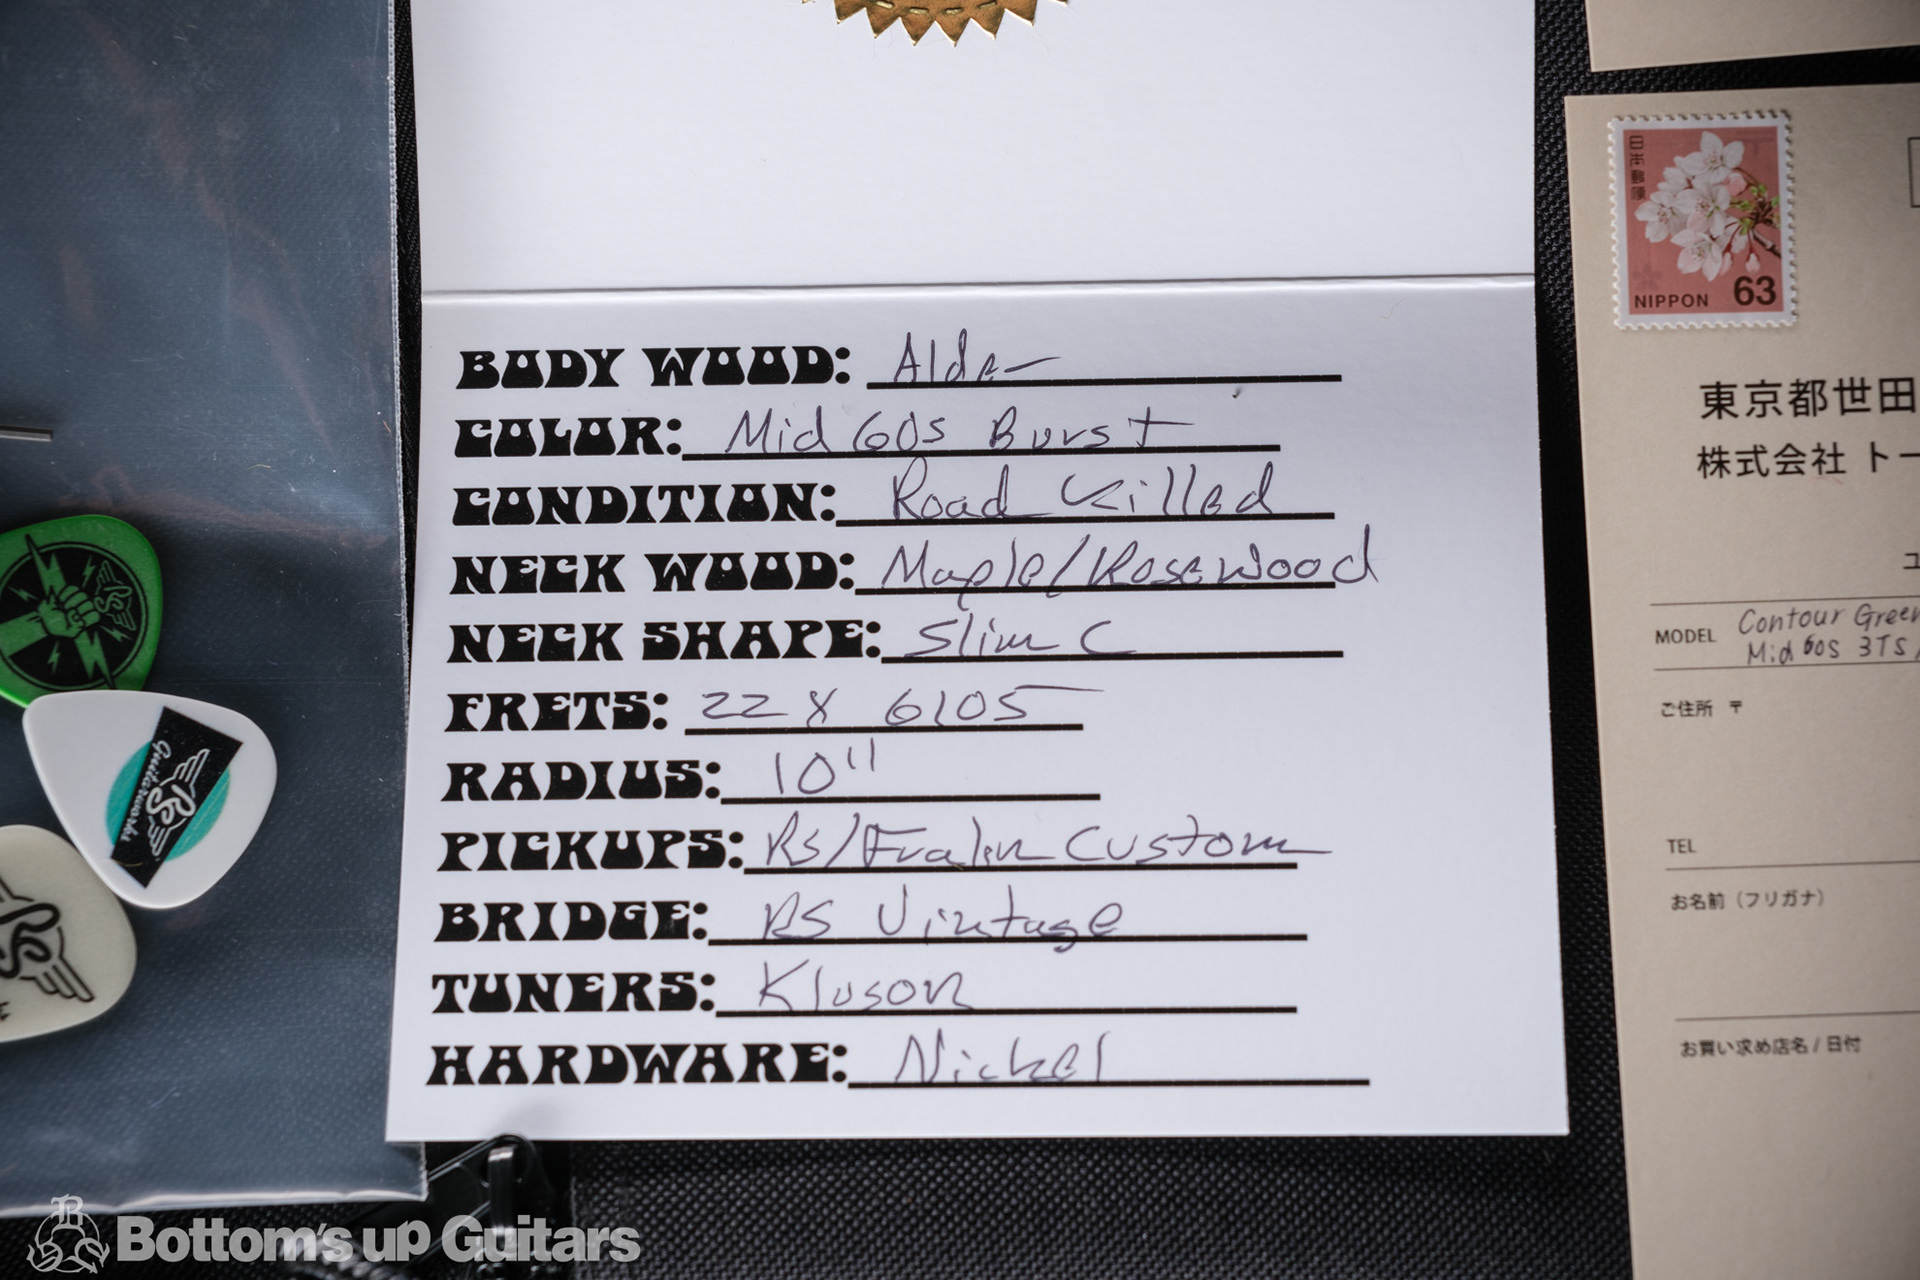 BODY WOOD: Alder
COLOR: Mid 60s Burst
CONDITION: Road Killed
NECK WOOD: Maple/Rosewood
NECK SHAPE: Slim C
FRETS: 22 x 6105
RADIUS: 10"
PICKUPS: RS/Fralin Custom
BRIDGE: RS Vintage
TUNERS: Kluson
HARDWARE: Nickel
日本郵便
NIPPON 63
東京都世田
株式会社 トー
ユ
MODEL Contour Green
Mid 60s 3TS/
ご住所 〒
TEL
お名前（フリガナ）
お買い求め店名 / 日付
RS
RS Guitarworks
RS
Bottom's up Guitars